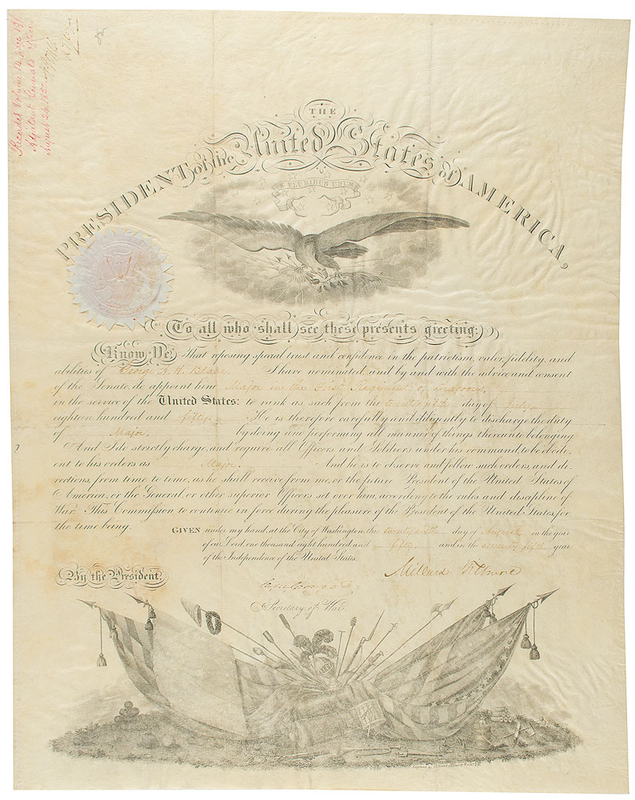 THE
PRESIDENT of the United States of AMERICA,
E PLURIBUS UNUM
To all who shall see these presents greeting:
Know Ye, That reposing special trust and confidence in the patriotism, valor, fidelity, and
abilities of George A. H. Blake I have nominated and by and with the advice and consent
of the Senate, do appoint him Major in the First Regiment of Dragoons
in the service of the United States: to rank as such from the day of July
eighteen hundred and fifty. He is therefore carefully and diligently to discharge the duty
of Major, by doing and performing all manner of things thereunto belonging.
And I do strictly charge, and require all Officers and Soldiers under his command, to be obedi-
ent to his orders as Major. And he is to observe and follow such orders, and di-
rections, from time to time, as he shall receive from me, or the future President of the United States of
America, or the General, or other superior Officers set over him, according to the rules and discipline of
War. This Commission to continue in force during the pleasure of the President of the United States, for
the time being.
GIVEN under my hand, at the City of Washington, the day of August in the year
of our Lord, one thousand eight hundred and fifty, and in the seventy fifth year
of the Independence of the United States.
Millard Fillmore
By the President
Secretary of War.